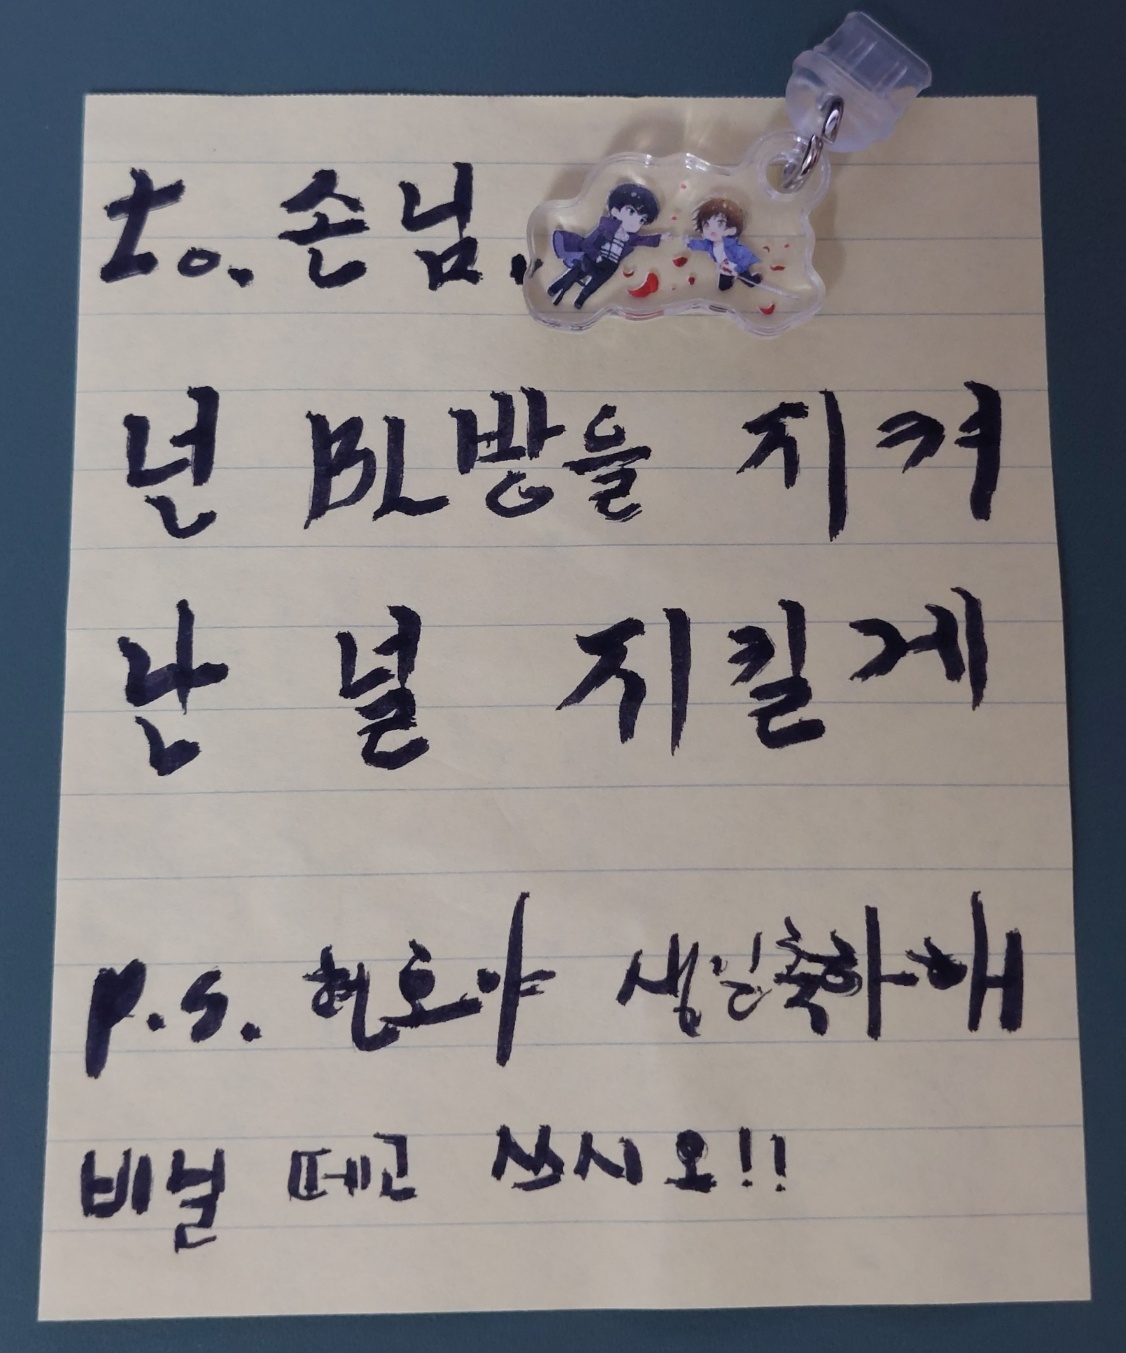 to. 손님.
넌 BL방을 지켜
난 널 지킬게
p.s. 현호야 생일축하해
비닐 떼고 쓰시오!!